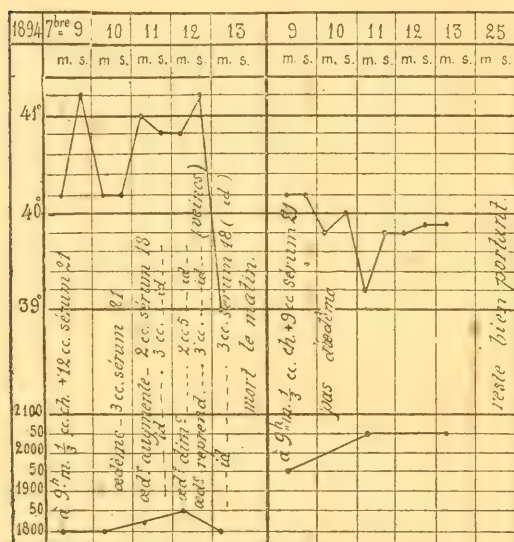 1894 7bre 9 10 11 12 13 9 10 11 12 13 25
m. s. m. s. m. s. m. s. m. s. m. s. m. s. m. s. m. s. m. s.
41°
40°
39°
2100
50
2000
50
1900
50
1800
à 9h m. 1/3 cc. ch. + 12 cc. sérum 21
œdème - 3 cc. sérum 21
œde augmente - 2 cc. sérum 18
- id - - - 3 cc. - - id - -
œde dime - - - - 2 cc 5 - - id - -
œde reprend - - - 3 cc. - - id - (veines)
- id - - - - 3 cc. sérum 18 ( id )
mort le matin.
à 9h m. 1/3 cc. ch. + 9 cc sérum 21
pas d'œdème
reste bien portant.